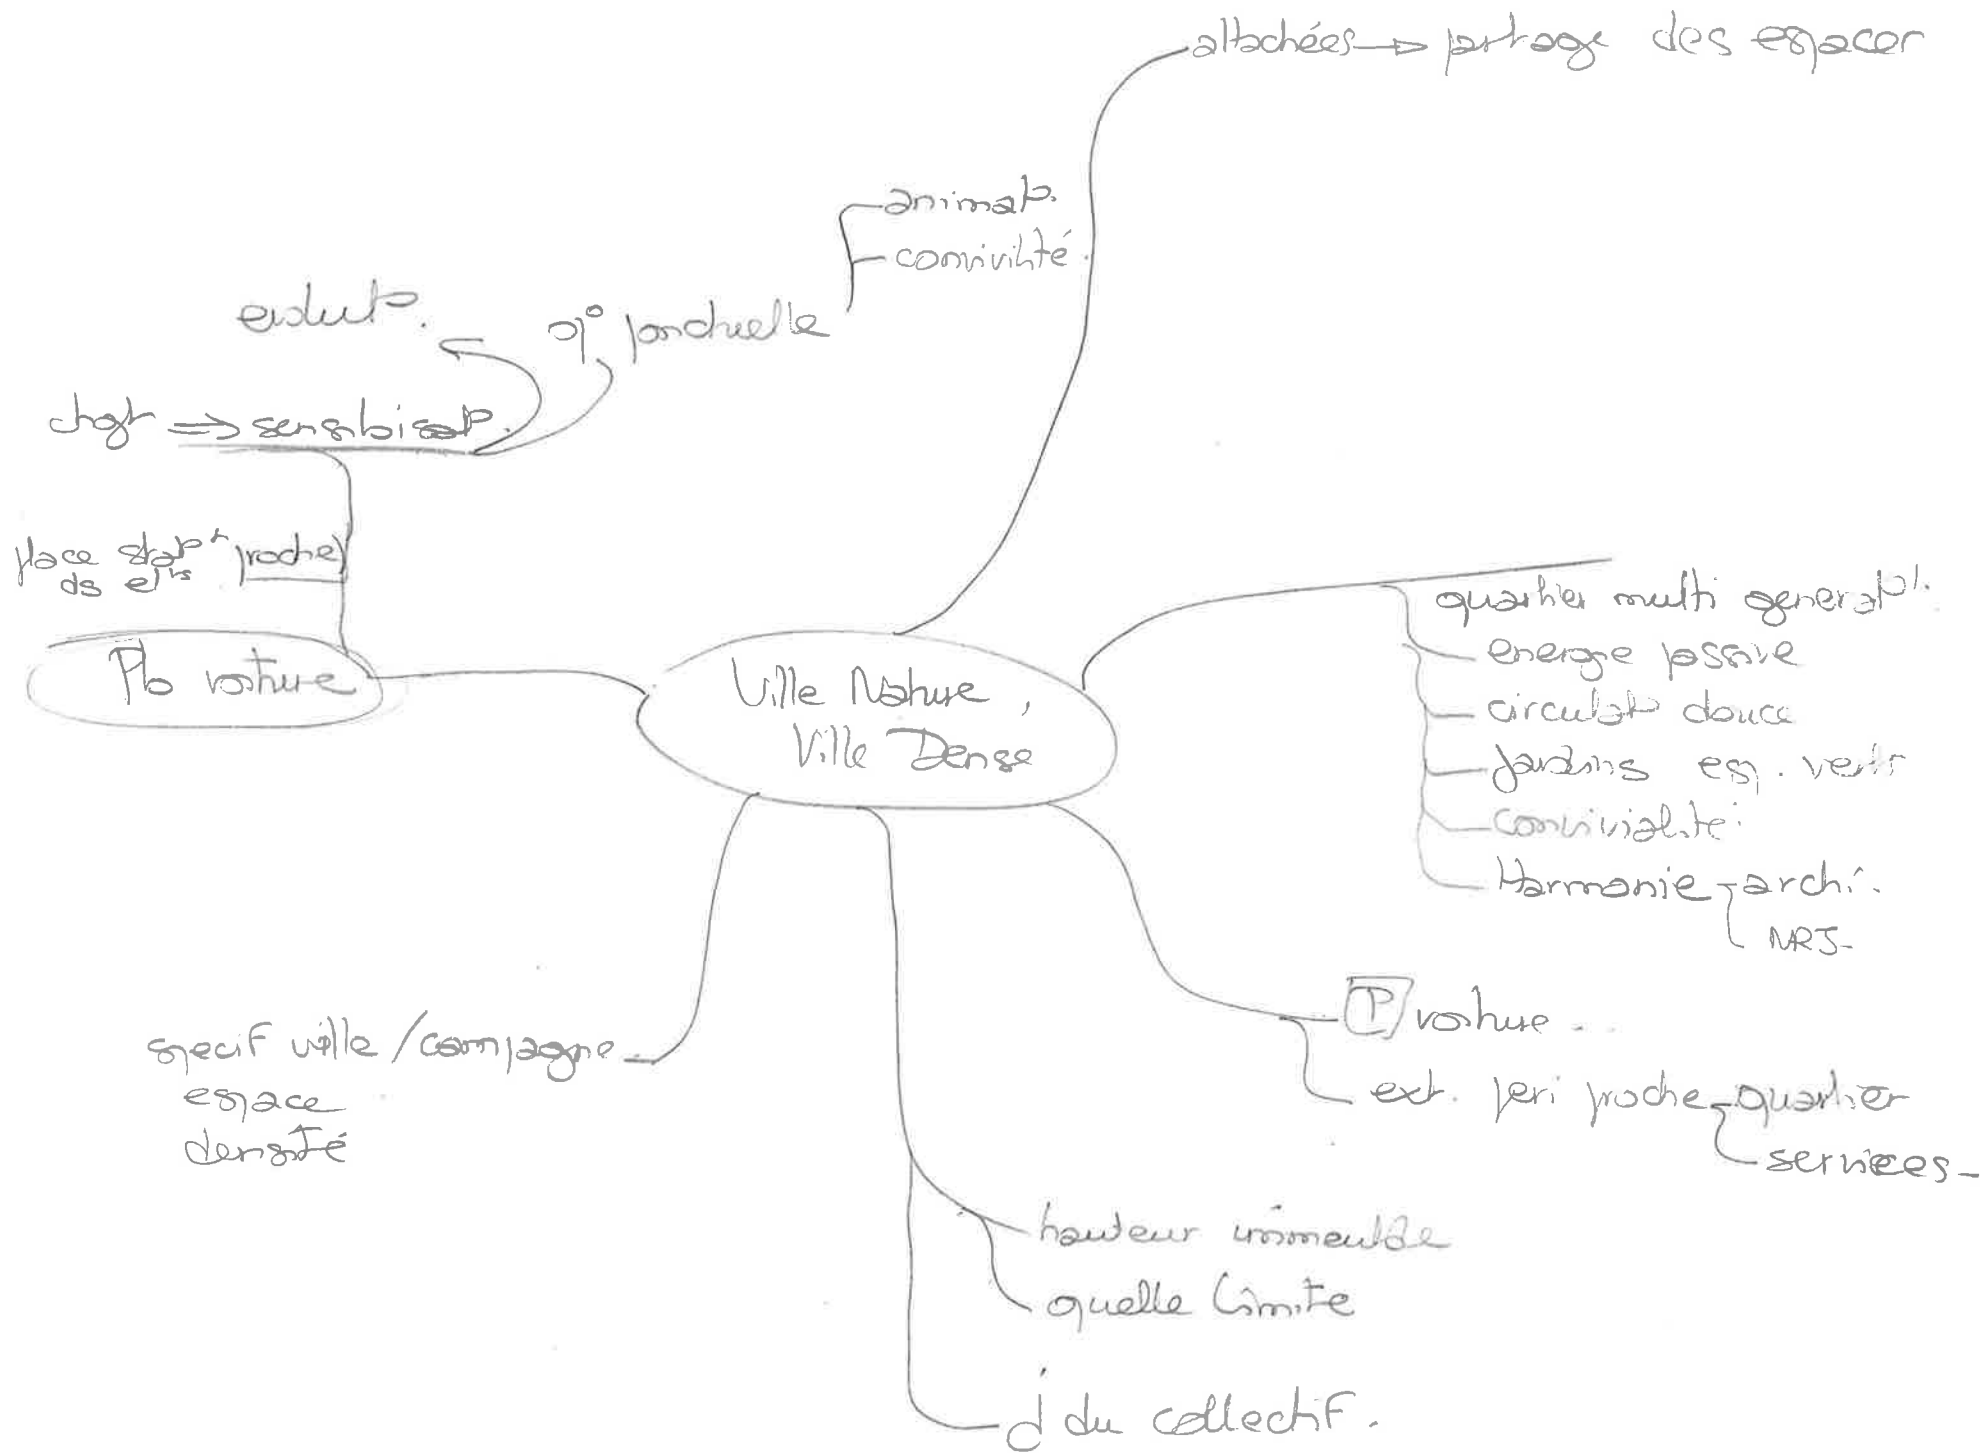 attachées → partage des espaces
animat°.
convivilité.
évolut°.
op° ponctuelle
chgt ⇒ sensibisat°.
place stat°t proche
ds
Pb voiture
Ville Nature,
Ville Dense
quartier multi generat°l.
energie passive
circulat° douce
Jardins esp. verts
convivialité
Harmonie archi.
NRJ
P voiture ..
ext. peri proche quartier
services
specif ville / campagne
espace
densité
hauteur immeuble
quelle limite
du collectif.